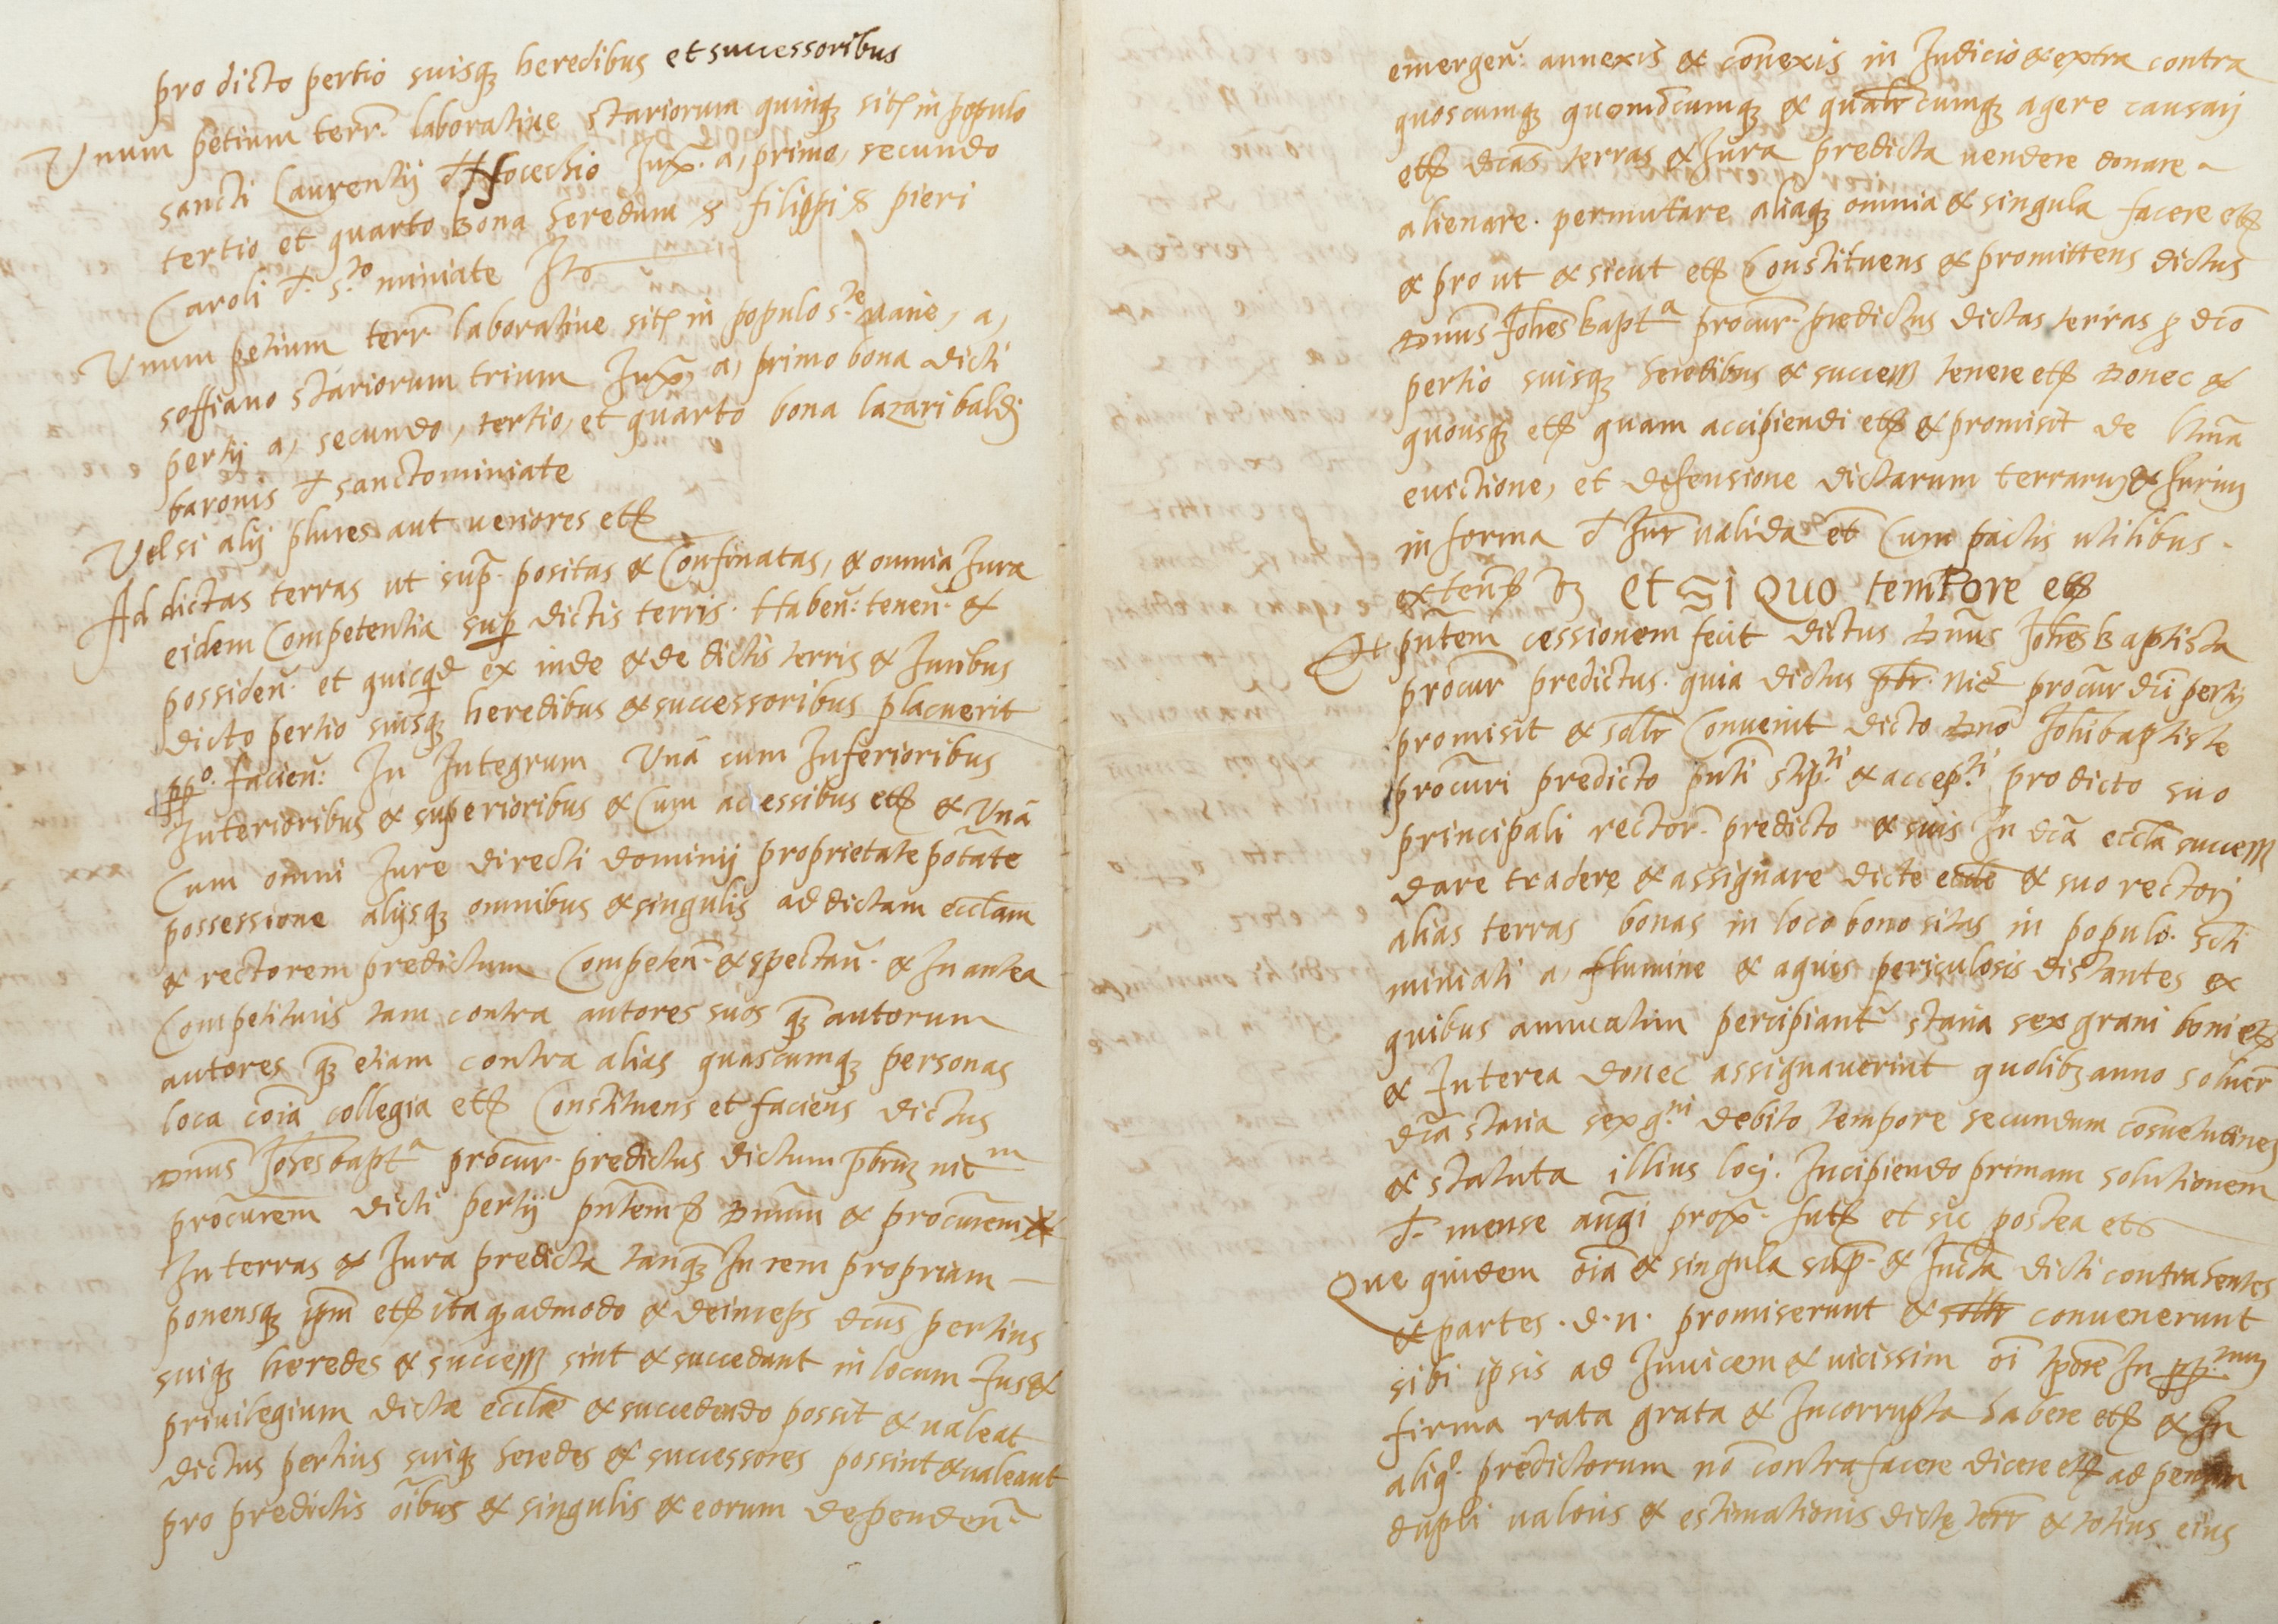 pro dicto pertio suisq₃ heredibus et successoribus
Unum petium terr̃. laborative stariorum quinq₃ sit₎ in populo
sancti Laurentij focechio Jux̃. a, primo, secundo
tertio et quarto bona heredum s filippi s pieri
Caroli d. s.to miniate Ito
Unum petium terr̃ laborative sit₎ in populo s.te marie, a,
soffiano stariorum trium Jux̃, a, primo bona dicti
pertij a, secundo, tertio, et quarto bona lazari baldi
baronis d sanctominiate
Vel si alij plures aut veriores etc
Ad dictas terras ut sup̃. positas & Confinatas, & omnia Jura
eidem Competentia sup dictis terris. Habeñ: teneñ. &
possideñ. et quicqd ex inde & de dictis terris & Juribus
dicto pertio suisq₃ heredibus & successoribus placuerit
pp.o facieñ: In Integrum Unã cum Inferioribus
Interioribus & superioribus & Cum accessibus etc & Unã
Cum omni Jure directi dominij proprietate põtate
possessione alijsq₃ omnibus & singulis ad dictam ecclam
& rectorem predictum Competeñ. & spectañ. & In antea
Competituris tam contra autores suos q₃ autorum
autores q₃ etiam contra alias quascumq₃ personas
loca coĩa collegia etc Constituens et faciens dictus
Dñus Johẽsbapt.a procur̃. predictus dictum p̃brum nic.m
procũrem dicti pertij pñtem etc Dñum & procũrem &
In terras & Jura predicta tanq₃ In rem propriam —
ponensq₃ ip̃m etc ita q admodo & deinceps dc̃us pertius
suiq₃ heredes & success sint & succedant in locum Jus &
privilegium dictæ ecclæ & succedendo possit & valeat
dictus pertius suiq₃ heredes & successores possint & valeant
pro predictis oĩbus & singulis & eorum dependeñ.
emergeñ: annexis & coñexis in Judicio & extra contra
quoscumq₃ quomõcumq₃ & qualr̃cumq₃ agere causari
etc dc̃as terras & Jura predicta vendere donare —
alienare. permutare aliaq₃ omnia & singula facere etc
& pro ut & sicut etc Constituens & promittens dictus
Dñus Johẽsbapt.a procur̃ predictus dictas terras p dc̃o
pertio suisq₃ heredibus & success tenere etc Donec &
quousq₃ etc quam accipiendi etc & promisit de
evictione, et defensione dictarum terrarum & Jurium
in forma d Jur̃ valida et Cum pactis utilibus.
et si quo tempore etc
Et pñtem cessionem fecit dictus Dñus Johẽsbaptista
procur̃ predictus. quia dictus p̃br. nic.s procur̃ dc̃i pertij
promisit & sollr̃ Convenit dicto Dñо Johibaptiste
procũri predicto pñti stip.ti & accep.ti pro dicto suo
principali rector̃. predicto & suis In dc̃a eccl̃a success
dare tradere & assignare dicte eccl̃e & suo rectori
alias terras bonas in loco bono sitas in populo. Sc̃ti
miniati a, flumine & aquis periculosis distantes ex
quibus annuatim percipiant̃ staria sex grani boni etc
& Interea donec assignaverint quolib₃ anno solver̃
dc̃a staria sex g.ni debito tempore secundum cõsuetudines
& statuta illius loci. Incipiendo primam solutionem
d. mense aug̃i prox̃. fut etc et sic postea etc
Que quidem oĩa & singula sup̃. & Inf̃ta dicti contrahentes
& partes. d. n. promiserunt & sollr̃ convenerunt
sibi ipsis ad Invicem & vicissim oĩ tpõre In pp.uum
firma rata grata & Incorrupta habere etc & In
aliq.o predictorum nõ contrafacere dicere etc ad penam
dupli valoris & estimationis dictę terr̃ & totius eius